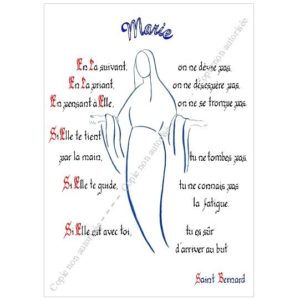 Marie
En La suivant, on ne dévie pas.
En La priant, on ne désespère pas.
En pensant à Elle, on ne se trompe pas.
Si Elle te tient
par la main, tu ne tombes pas.
Si Elle te guide, tu ne connais pas
la fatigue.
Si Elle est avec toi, tu es sûr
d'arriver au but
Saint Bernard
Copie non autorisée --- Copie non autorisée --- Copie non autorisée